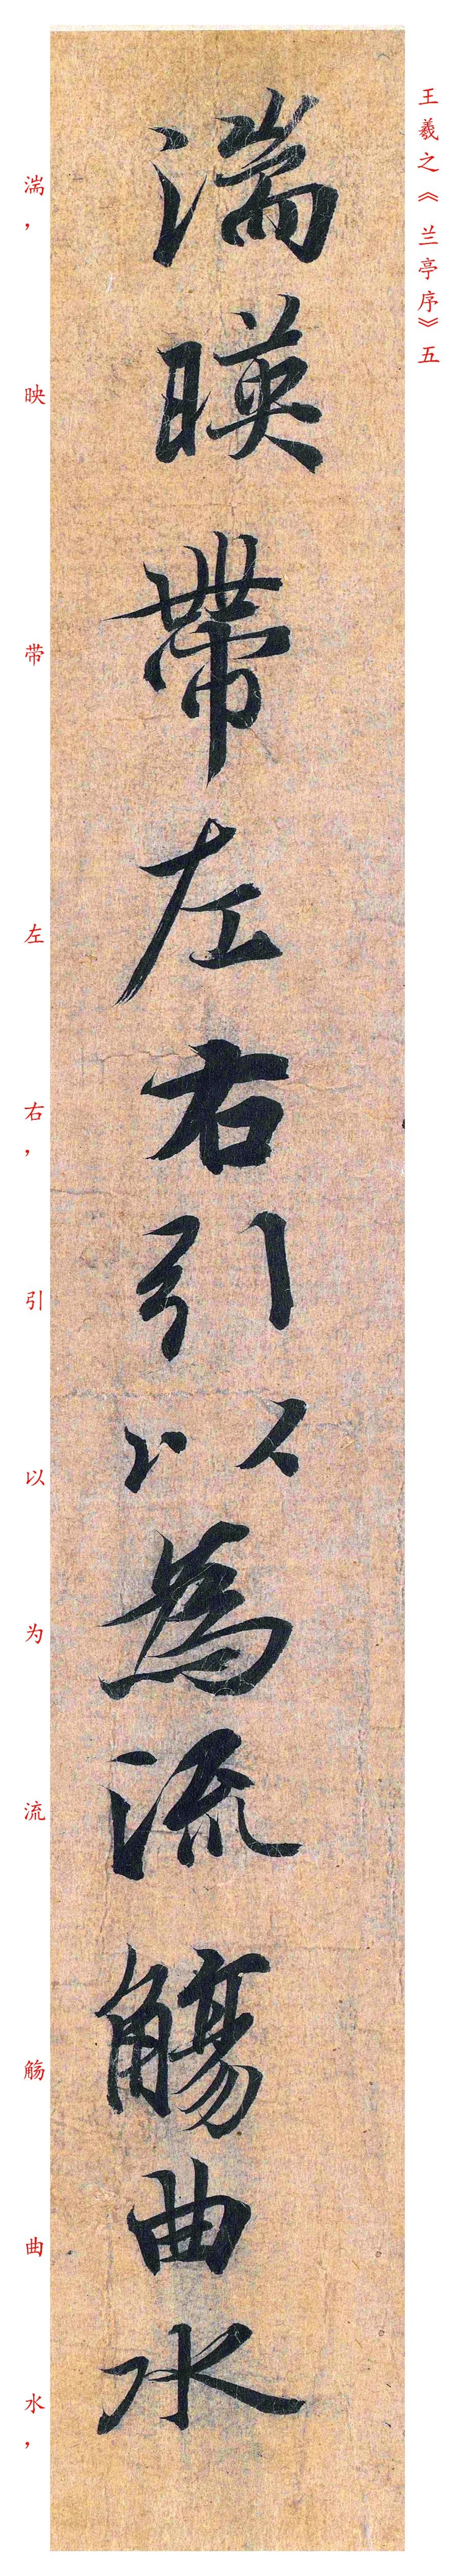 王羲之《兰亭序》五
湍暎帶左右引以為流觴曲水
湍，映带左右，引以为流觞曲水，